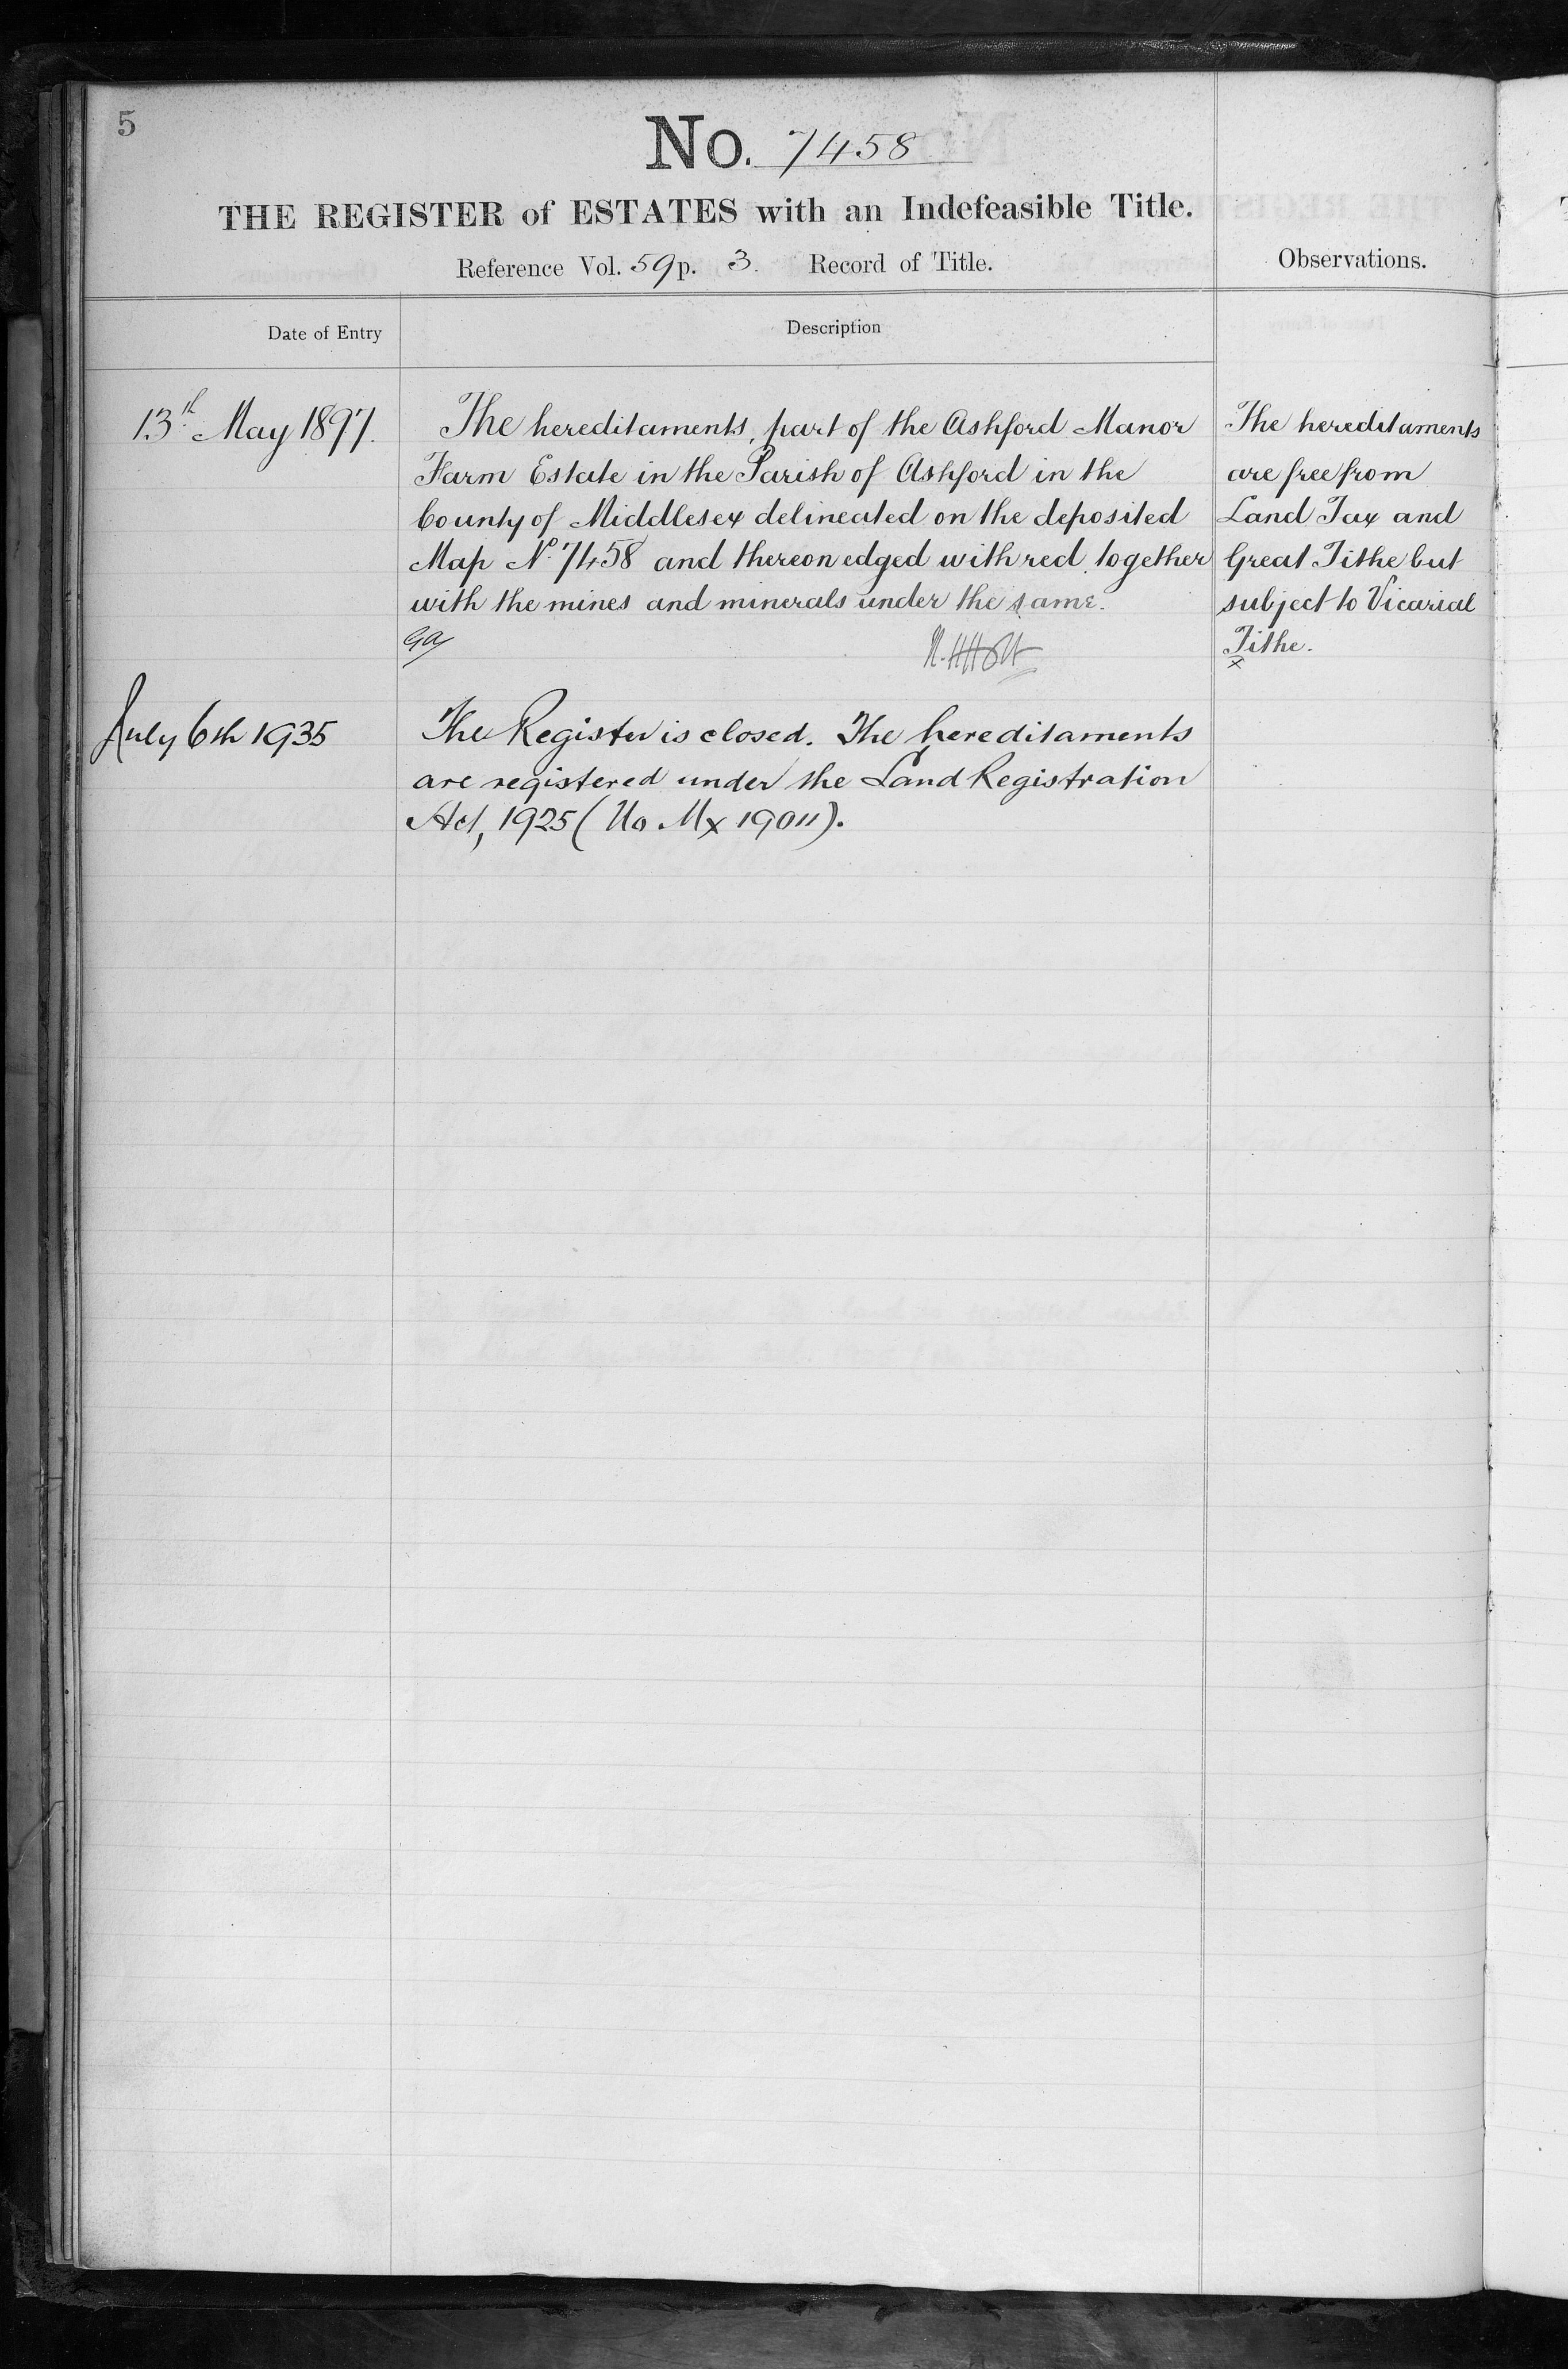 5
No. 7458
THE REGISTER of ESTATES with an Indefeasible Title.
Reference Vol. 59 p. 3. Record of Title.
Observations.
Date of Entry
Description
13th May 1897.
The hereditaments, part of the Ashford Manor
Farm Estate in the Parish of Ashford in the
County of Middlesex delineated on the deposited
Map No. 7458 and thereon edged with red together
with the mines and minerals under the same.
The hereditaments
are free from
Land Tax and
Great Tithe but
subject to Vicarial
Tithe.
x
July 6th 1935
The Register is closed. The hereditaments
are registered under the Land Registration
Act, 1925 (No Mx 19011).